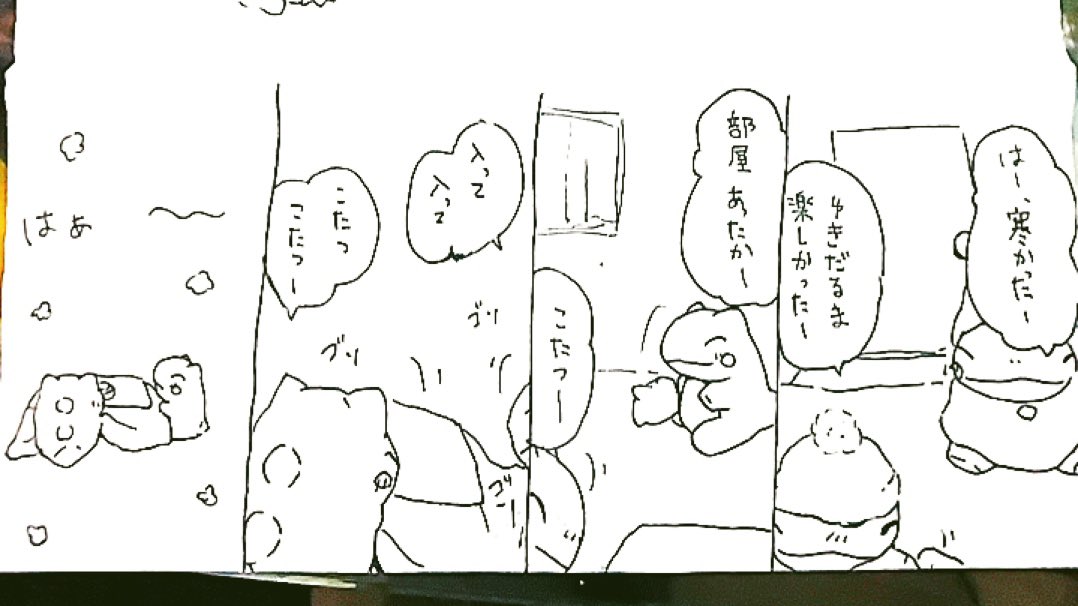 はー、寒かったー
ゆきだるま
楽しかったー
部屋
あったかー
こたつー
入って
入って
こたつ
こたつー
ゴソ
ゴソ
ゴソー
はぁ